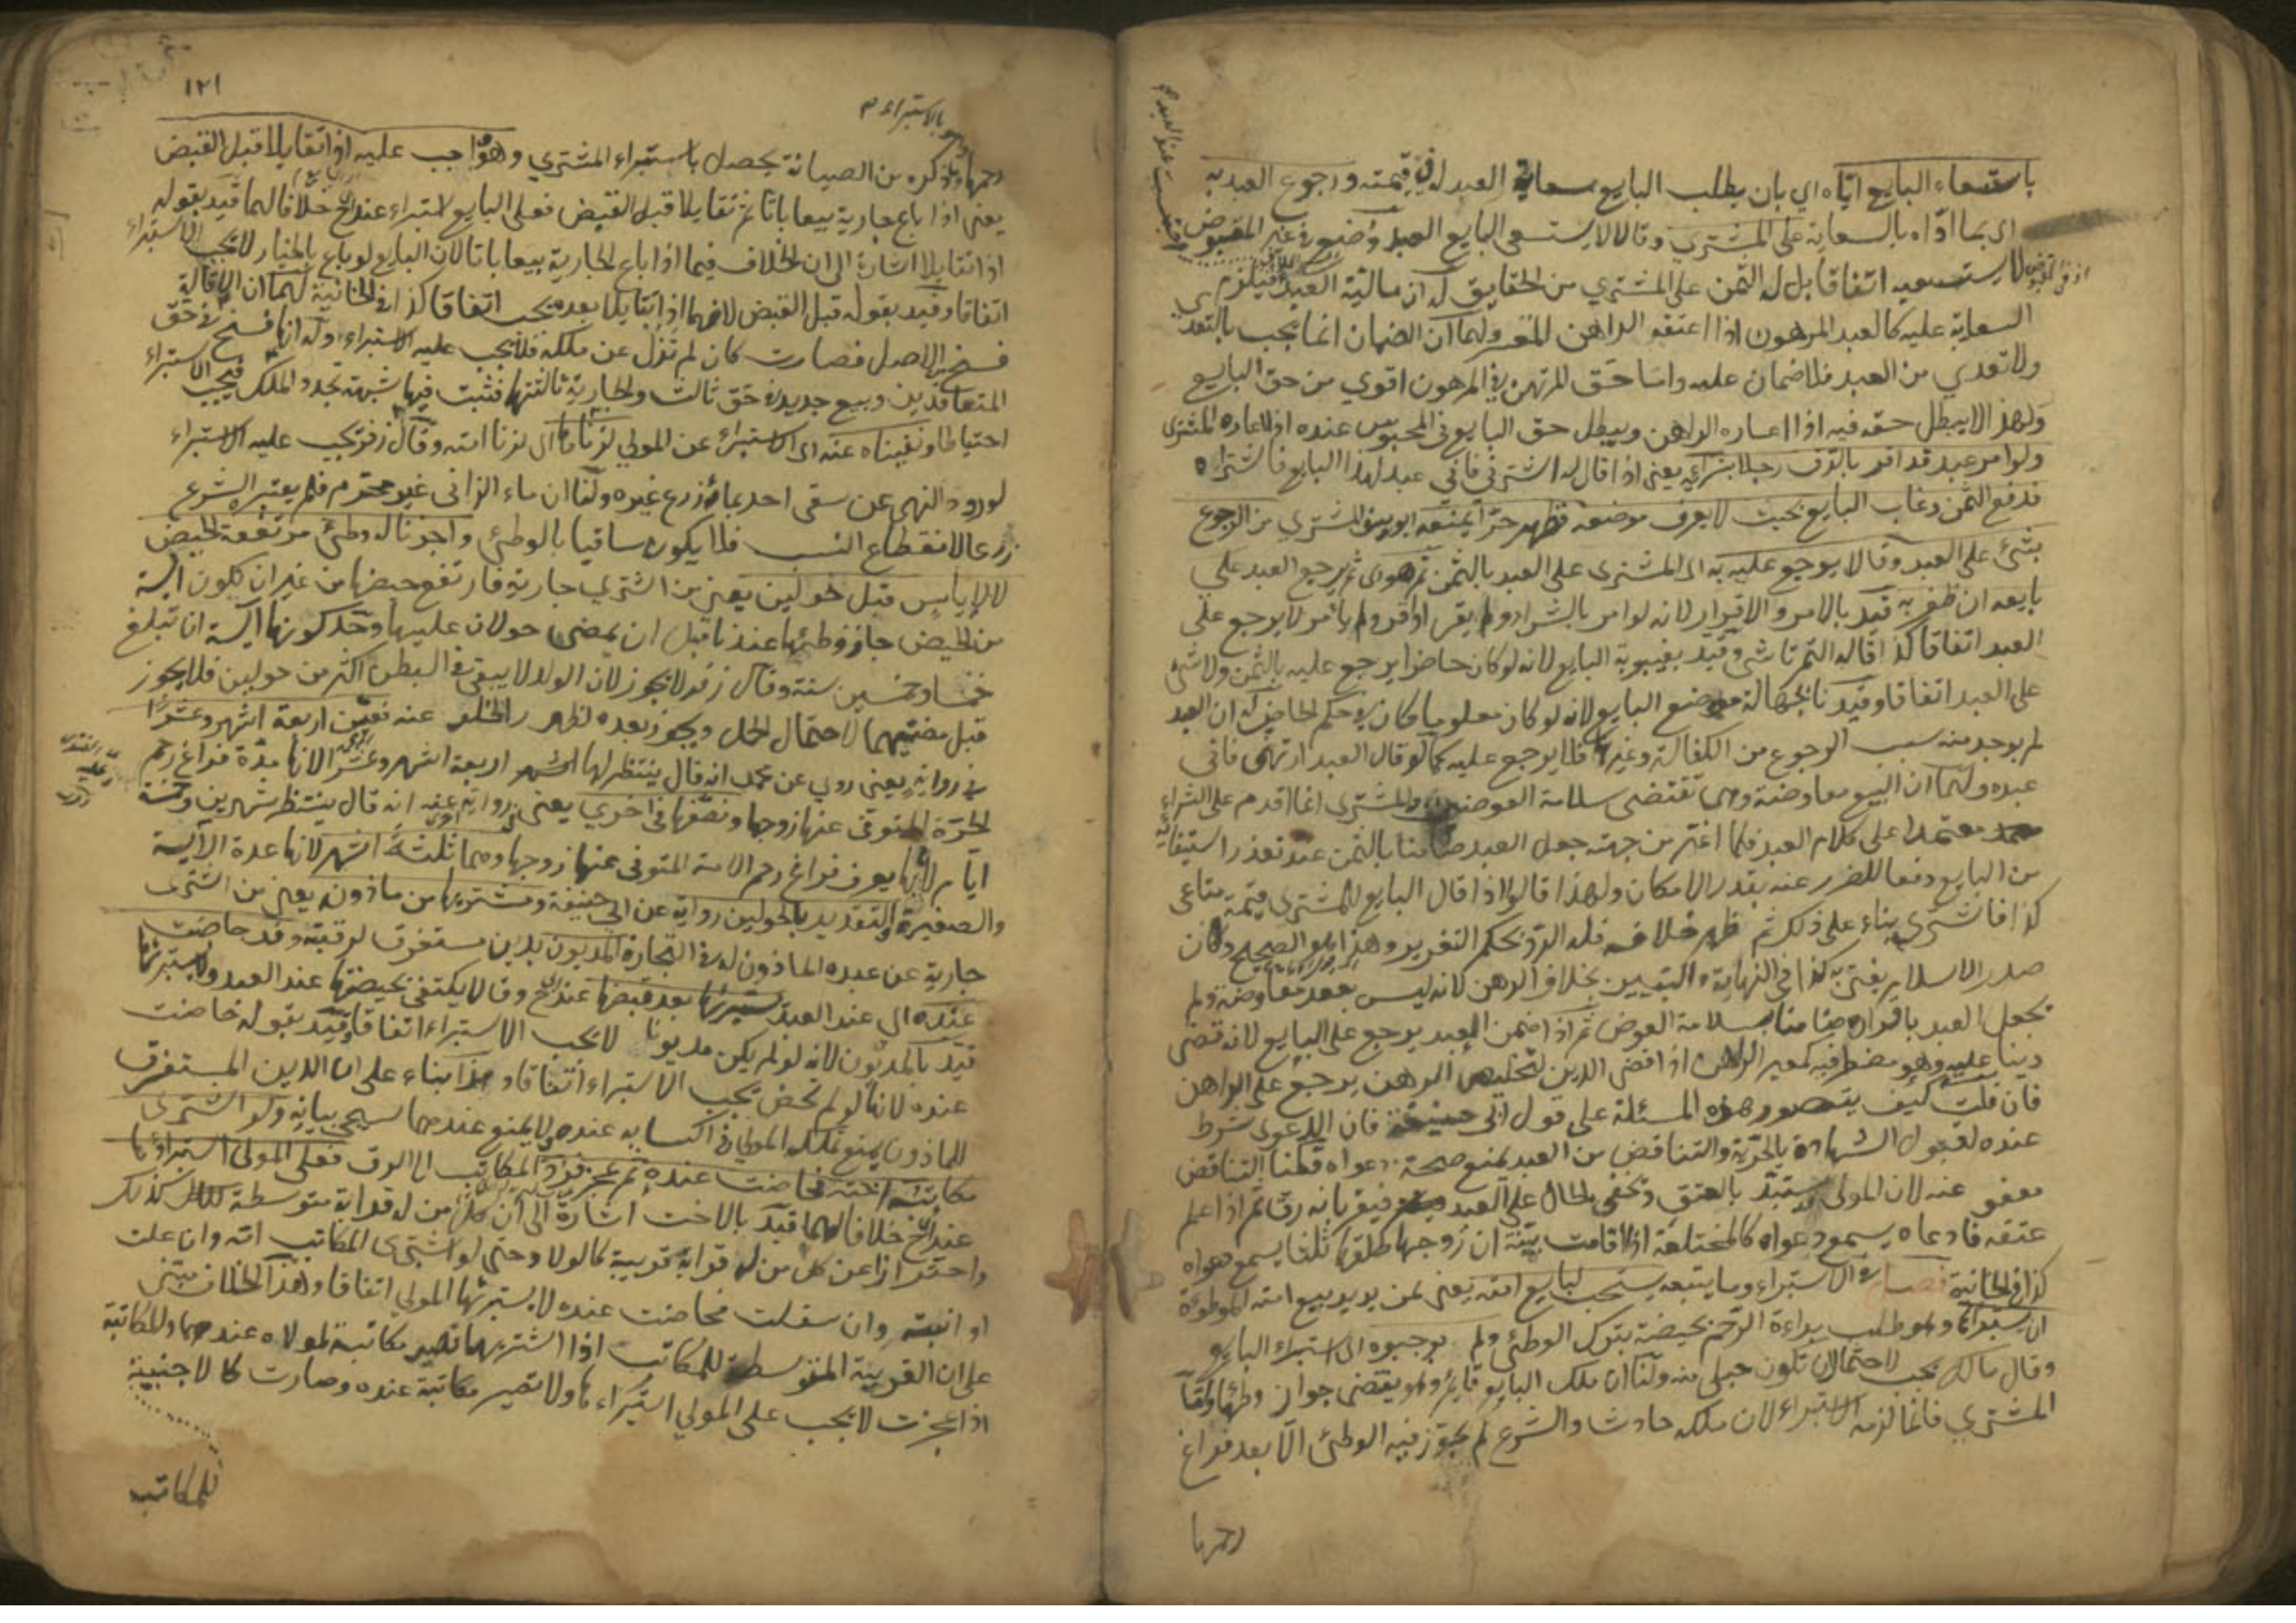 باستسعاء البايع اياه اي بان يطلب البايع سعاية العبد له في قيمته ورجوع العبد به
اى بما اداه بالسعاية على المشتري وقالا لا يستسعى البايع العبد وضع في غير المقبوض
لا يستسعيه اتفاقا بل له الثمن على المشتري من الحقايق له ان مالية العبد فيلزم
السعاية عليه كالعبد المرهون اذا اعتقه الراهن المعسر ولهما ان الضمان انما يجب بالتعدي
ولا تعدي من العبد فلا ضمان عليه واما حق المرتهن في المرهون اقوي من حق البايع
ولهذا لا يبطل حقه فيه اذا اعاره الراهن ويبطل حق البايع في المحبوس عنده اذا اعاره المشترى
ولو امر عبد قد اقر بالرق رجلا بشرايه يعني اذا قال له اشترني فاني عبد لهذا البايع فاشتراه
فدفع الثمن وغاب البايع بحيث لا يعرف موضعه فظهر حرا يمنعه ابو يوسف المشتري من الرجوع
بشئ على العبد وقالا يرجع عليه به اى المشترى على العبد بالثمن ثم هو اى ثم يرجع العبد علي
بايعه ان ظفر به قيد بالامر والاقرار لانه لو امر بالشراء ولم يقر او اقر ولم يأمر لا يرجع على
العبد اتفاقا كذا قاله التمرتاشي وقيد بغيبوبة البايع لانه لو كان حاضرا يرجع عليه بالثمن ولا شئ
على العبد اتفاقا وقيدنا بجهالة موضع البايع لانه لو كان معلوما فكان في حكم الحاضر له ان العبد
لم يوجد منه سبب الرجوع من الكفالة وغيرها فلا يرجع عليه كما لو قال العبد ارتهني فاني
عبده ولهما ان البيع معاوضة وهى تقتضى سلامة العوضين والمشترى انما اقدم على الشراء
معتمدا على كلام العبد فلما اغتر من جهته جعل العبد ضامنا بالثمن عند تعذر استيفائه
من البايع دفعا للضرر عنه بقدر الامكان ولهذا قالوا اذا قال البايع للمشترى قيمة متاعى
كذا فاشترى بناء على ذلك ثم ظهر خلافه فله الرد بحكم التغرير وهذا هو الصحيح وكان
صدر الاسلام يفتي به كذا في النهاية والتبيين بخلاف الرهن لانه ليس بعقد معاوضة ولم
نجعل العبد باقراره ضامنا بسلامة العوض ثم اذا ضمن العبد يرجع على البايع لانه قضى
دينا عليه وهو مضطر فيه كمعير الراهن اذا قضى الدين لتخليص الرهن يرجع على الراهن
فان قلت كيف يتصور هذه المسئلة على قول ابي حنيفة فان الدعوى شرط
عنده لقبول الشهادة بالحرية والتناقض من العبد يمنع صحة دعواه قلنا التناقض
معفو عنه لان المولى يستبد بالعتق وتخفى الحال على العبد فيقر بانه رق ثم اذا علم
عتقه فادعاه يسمع دعواه كالمختلعة اذا اقامت بينة ان زوجها طلقها ثلثا يسمع دعواه
كذا في الخانية فصل في الاستبراء وما يتبعه يستحب لبايع امته يعني لمن يريد بيع امته الموطوءة
ان يستبرئها وهو طلب براءة الرحم بحيضة بترك الوطئ ولم يوجبوه اى استبراء البايع
وقال مالك يجب لاحتمال ان تكون حبلى منه ولنا ان ملك البايع قايم وهو يقتضى جواز وطئها واما
المشتري فانما لزمه الاستبراء لان ملكه حادث والشرع لم يجوز فيه الوطئ الا بعد فراغ
رحمها
١٢١
بالاستبراء
رحمها وما ذكره من الصيانة يحصل باستبراء المشتري وهو واجب عليه او اتقايلا قبل القبض
يعني اذا باع جارية بيعا باتا ثم تقايلا قبل القبض فعلى البايع استبراء عند ح خلافا لهما قيد بقوله
اذا تقايلا اشارة الى ان الخلاف فيما اذا باع الجارية بيعا باتا لان البايع لو باع بالخيار لا يجب الاستبراء
اتفاقا وقيد بقوله قبل القبض لانهما اذا تقايلا بعده يجب اتفاقا كذا في الخانية لهما ان الاقالة
فسخ من الاصل فصارت كان لم تزل عن ملكه فلا يجب عليه الاستبراء وله انها فسخ في حق
المتعاقدين وبيع جديد في حق ثالث والجارية ثالثتها فثبت فيها شبهة تجدد الملك فيجب الاستبراء
احتياطا ونفيناه عنه اى الاستبراء عن المولي لزناها اى لزنا امته وقال زفر يجب عليه الاستبراء
لورود النهى عن سقى احد ماءه زرع غيره ولنا ان ماء الزاني غير محترم فلم يعتبره الشرع
زرعا لانقطاع النسب فلا يكون ساقيا بالوطئ واجزنا له وطئ مرتفعة الحيض
لا لاياس قبل حولين يعني من اشتري جارية فارتفع حيضها من غير ان تكون آيسة
من الحيض جاز وطئها عندنا قبل ان يمضى حولان عليها وحد كونها آيسة ان تبلغ
خمسا وخمسين سنة وقال زفر لا يجوز لان الولد لا يبقى في البطن اكثر من حولين فلا يجوز
قبل مضيهما لاحتمال الحمل ويجوز بعده لظهور الخلو عنه نعين اربعة اشهر وعشرا
في رواية يعني روي عن محمد انه قال ينتظر لها اربعة اشهر وعشر لانها مدة فراغ رحم
الحرة المتوفى عنها زوجها ونصفها في اخري يعني في رواية عنه انه قال ينتظر شهرين وخمسة
ايام لانها يعرف فراغ رحم الامة المتوفى عنها زوجها وهما ثلثة اشهر لانها عدة الآيسة
والصغيرة والتقدير بالحولين رواية عن ابي حنيفة ومشتريها من ماذونه يعني من اشترى
جارية عن عبده الماذون له في التجارة المديون بدين مستغرق لرقبته وقد حاضت
عنده اي عند العبد يستبرئها بعد قبضها عند ح وقالا يكتفى بحيضتها عند العبد ولا يستبرئها
قيد بالمديون لانه لو لم يكن مديونا لا يجب الاستبراء اتفاقا وقيد بقوله حاضت
عنده لانها لو لم تحض يجب الاستبراء اتفاقا وهذا بناء على ان الدين المستغرق
للماذون يمنع تملك المولى في اكسابه عنده ولا يمنع عندهما سيجئ بيانه ولو اشترى
مكاتبه اخته فحاضت عنده ثم عجز فرد المكاتب الى الرق فعلى المولى استبراؤها
عند ح خلافا لهما قيد بالاخت اشارة الى ان كل من له قرابة متوسطة كذلك
واحترازا عن كل من له قرابة قريبة كالولاد حتى لو اشترى المكاتب امه وان علت
او ابنته وان سفلت فحاضت عنده لا يستبرئها المولي اتفاقا وهذا الخلاف مبنى
على ان القريبة المتوسطة للمكاتب اذا اشتريها تصير مكاتبة لمولاه عندهما والمكاتبة
اذا عجزت لا يجب على المولي استبراءها ولا تصير مكاتبة عنده وصارت كالاجنبية
للمكاتب